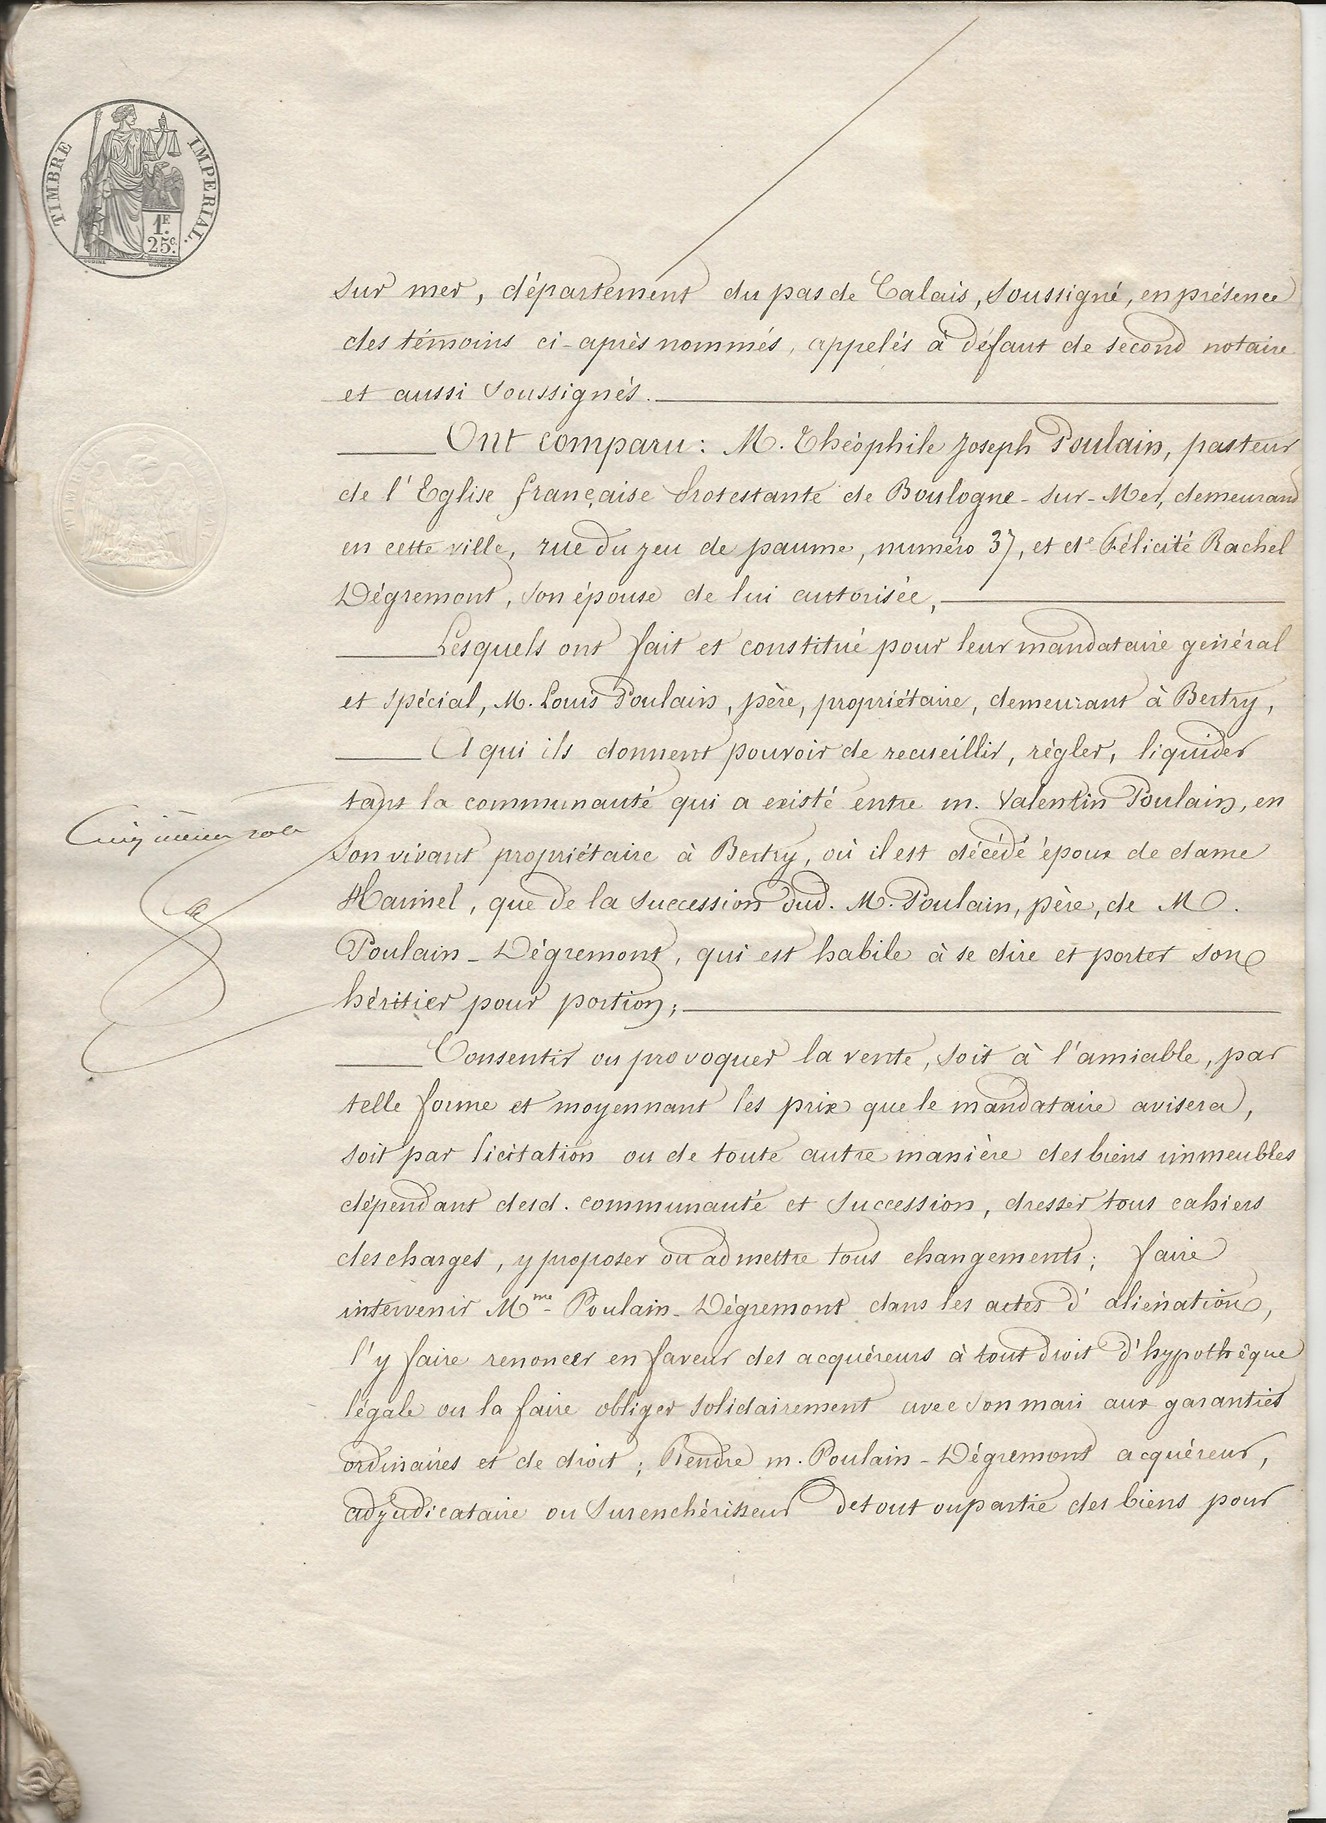 TIMBRE IMPERIAL.
1F.
25c.
sur mer, département du pas de Calais, soussigné, en présence
des témoins ci-après nommés, appelés à défaut de second notaire
et aussi soussignés.
Ont comparu : M. Théophile Joseph Poulain, pasteur
de l'Eglise française Protestante de Boulogne-sur-Mer, demeurand
en cette ville, rue du jeu de paume, numéro 37, et de Félicité Rachel
Dégremont, son épouse de lui autorisée,
Lesquels ont fait et constitué pour leur mandataire général
et spécial, M. Louis Poulain, père, propriétaire, demeurant à Bertry,
A qui ils donnent pouvoir de recueillir, régler, liquider
tant la communauté qui a existé entre m. Valentin Poulain, en
son vivant propriétaire à Bertry, où il est décédé époux de dame
Hannel, que de la succession dud. M. Poulain, père, de M.
Poulain-Dégremont, qui est habile à se dire et porter son
héritier pour portion;
Cinquième role
Consentir ou provoquer la vente, soit à l'amiable, par
telle forme et moyennant les prix que le mandataire avisera,
soit par licitation ou de toute autre manière des biens immeubles
dépendant desd. communauté et succession, dresser tous cahiers
des charges, y proposer ou admettre tous changements; faire
intervenir Mme Poulain-Dégremont dans les actes d'aliénation,
l'y faire renoncer en faveur des acquéreurs à tout droit d'hypothèque
légale ou la faire obliger solidairement avec son mari aux garanties
ordinaires et de droit; Rendre m. Poulain-Dégremont acquéreur,
adjudicataire ou surenchérisseur de tout ou partie des biens pour